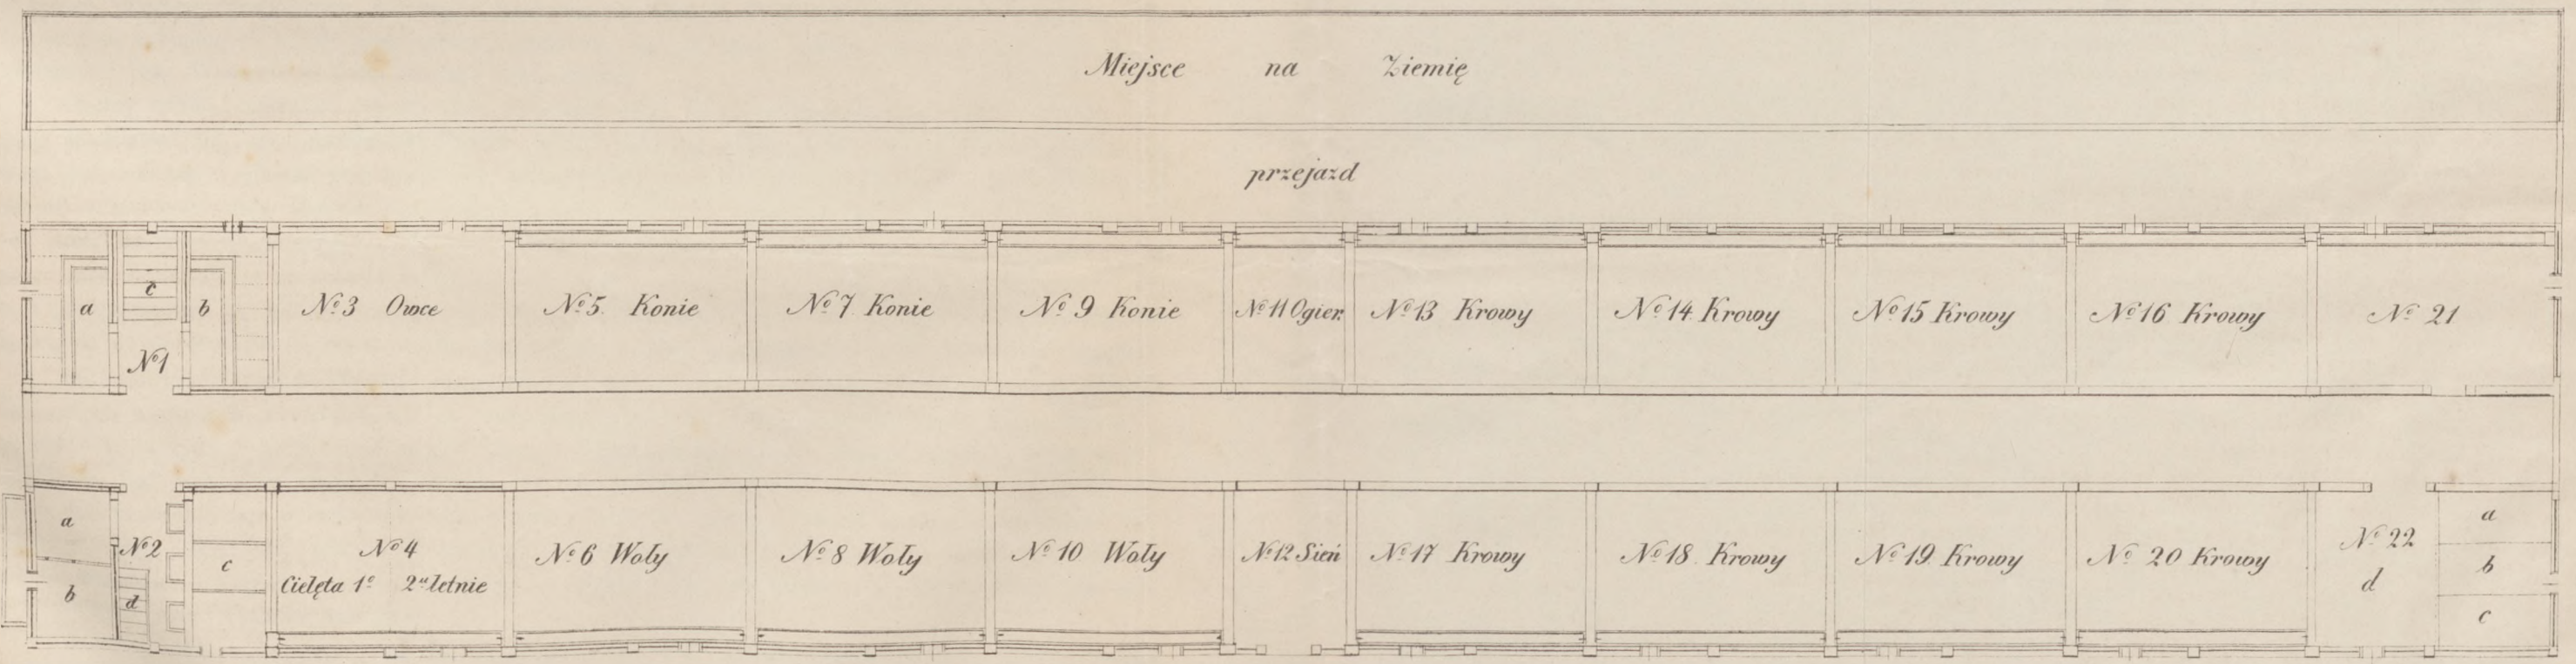 Miejsce na Ziemię
przejazd
a
c
b
№1
№3 Owce
№5. Konie
№7 Konie
№ 9 Konie
№11 Ogier.
№13 Krowy
№14 Krowy
№15 Krowy
№16 Krowy
№ 21
a
b
№2
d
c
№4
Cielęta 1º 2u letnie
№6 Woły
№8 Woły
№10 Woły
№12 Sień
№17 Krowy
№18. Krowy
№19. Krowy
№ 20 Krowy
№ 22
d
a
b
c